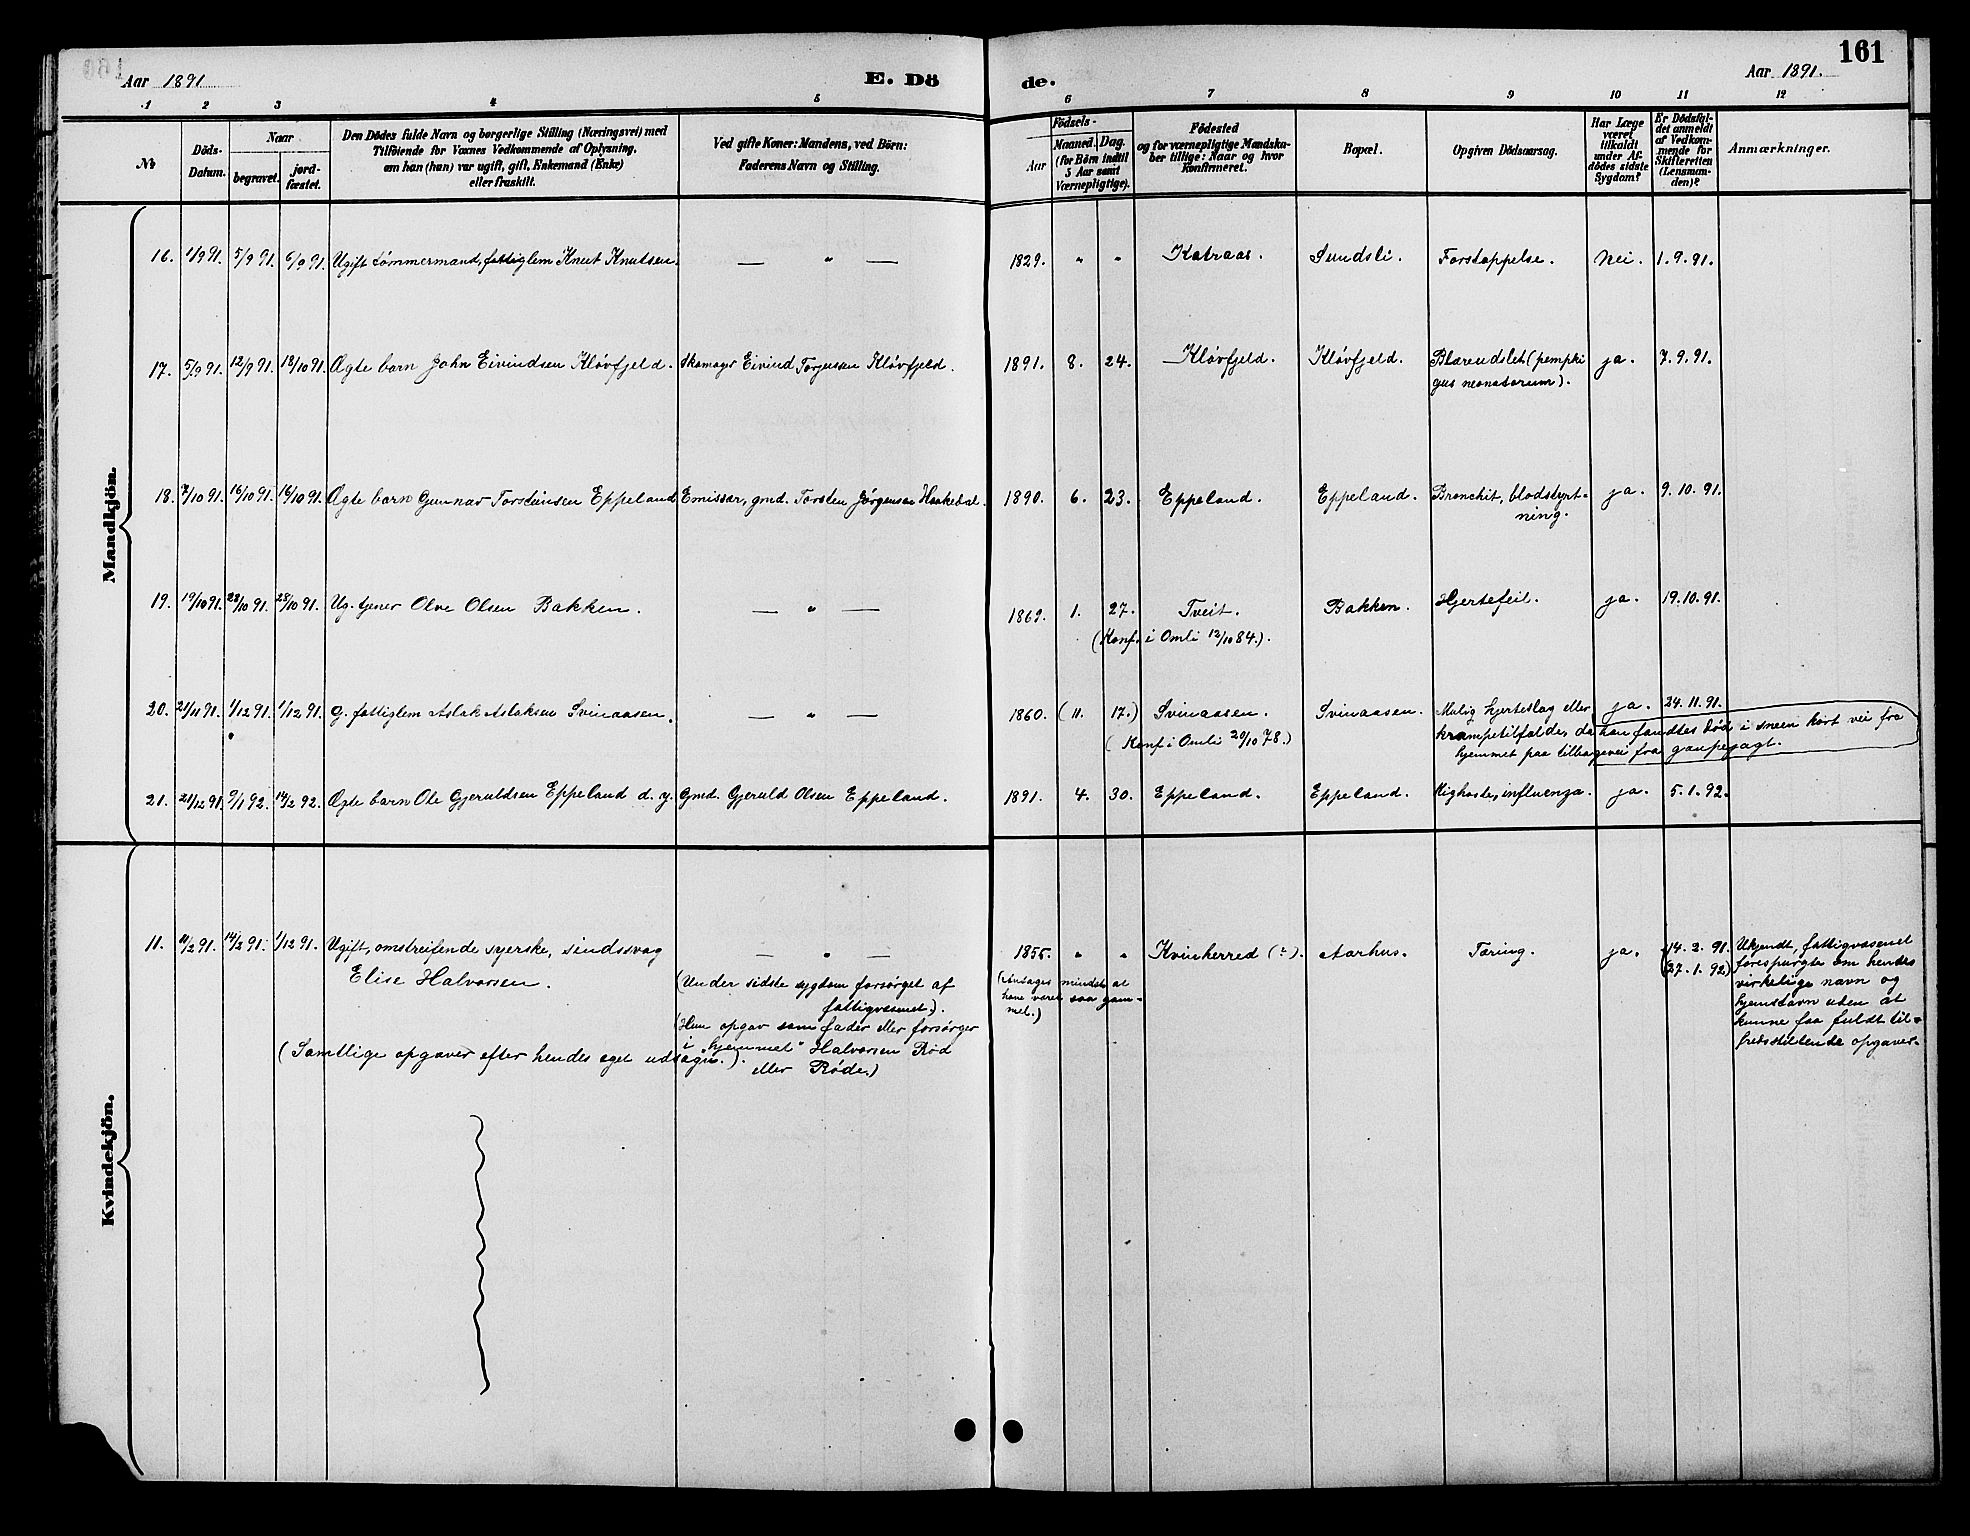 Aar 1891 E. Dö de. Aar 1891. 161
1 2 3 4 5 6 7 8 9 10 11 12
No. Döds-Datum. Naar begravet. jordfæstet. Den Dödes fulde Navn og borgerlige Stilling (Næringsvei) med Tilföiende for Voxnes Vedkommende af Oplysning, om han (hun) var ugift, gift, Enkemand (Enke) eller fraskilt. Ved gifte Koner: Mandens, ved Börn: Faderens Navn og Stilling. Födsels- Aar Maaned. Dag. (for Börn indtil 5 Aar samt Værnepligtige). Födested og for værnepligtige Mandskaber tillige: Naar og hvor Konfirmeret. Bopæl. Opgiven Dödsaarsag. Har Læge været tilkaldt under Afdödes sidste Sygdom? Er Dödsfaldet anmeldt af Vedkommende for Skifteretten (Lensmanden)? Anmærkninger.
Mandkjön.
16. 1/9 91. 5/9 91. 6/9 91. Ugift tömmermand, fattiglem Knut Knutsen. — " — 1829. " " Katraas. Sundsli. Forstoppelse. Nei. 1.9.91.
17. 5/9 91. 12/9 91. 18/10 91. Ægte barn John Eivindsen Klövfjeld. Skomager Eivind Torjussen Klövfjeld. 1891. 8. 24. Klövfjeld. Klövfjeld. Blæreudslet (pemphi ja. 7.9.91.
gus neonatorum).
18. 7/10 91. 16/10 91. 16/10 91. Ægte barn Gunnar Torsteinsen Eppeland Emissær, gmd. Torsten Jörgensen Haakedal. 1890. 6. 23. Eppeland. Eppeland. Bronchit, blodstyrt- ja. 9.10.91.
ning.
19. 19/10 91. 28/10 91. 28/10 91. Ug. tjener Olve Olsen Bakken. — " — 1869. 1. 27. Tveit. Bakken. Hjertefeil. ja. 19.10.91.
(Konf. i Omli 12/10 84.).
20. 21/11 91. 1/12 91. 1/12 91. G. fattiglem Aslak Aslaksen Svinaasen. — " — 1860. (11. 17.) Svinaasen. Svinaasen. Mulig hjerteslag eller ja. 24.11.91.
(Konf. i Omli 20/10 78.) krampetilfælde, da han fandtes död i sneen kort vei fra
hjemmet paa tilbagevei fra gaupejagt.
21. 21/12 91. 9/1 92. 14/2 92. Ægte barn Ole Gjeruldsen Eppeland d. y. Gmd. Gjeruld Olsen Eppeland. 1891. 4. 30. Eppeland. Eppeland. Kighoste, influenza. ja. 5.1.92.
Kvindekjön.
11. 11/2 91. 14/2 91. 1/12 91. Ugift, omstreifende syerske, sindssvag — " — 1855. " " Kvinherred (?). Aarhus. Tæring. ja. (14.2.91. Ukjendt, fattigvæsenet
Elise Halvorsen. (Under sidste sygdom forsörget af (Antages mindst at (27.1.92) forespurgte om hendes
fattigvæsenet). have været saa gam- virkelige navn og
(Hun opgav som fader eller forsörger mel.) hjemstavn uden at
i "hjemmet" Halvorsen Röd kunne faa fuldt til-
(Samtlige opgaver efter hendes eget udsagn.). eller Röde.) fredsstillende opgaver.